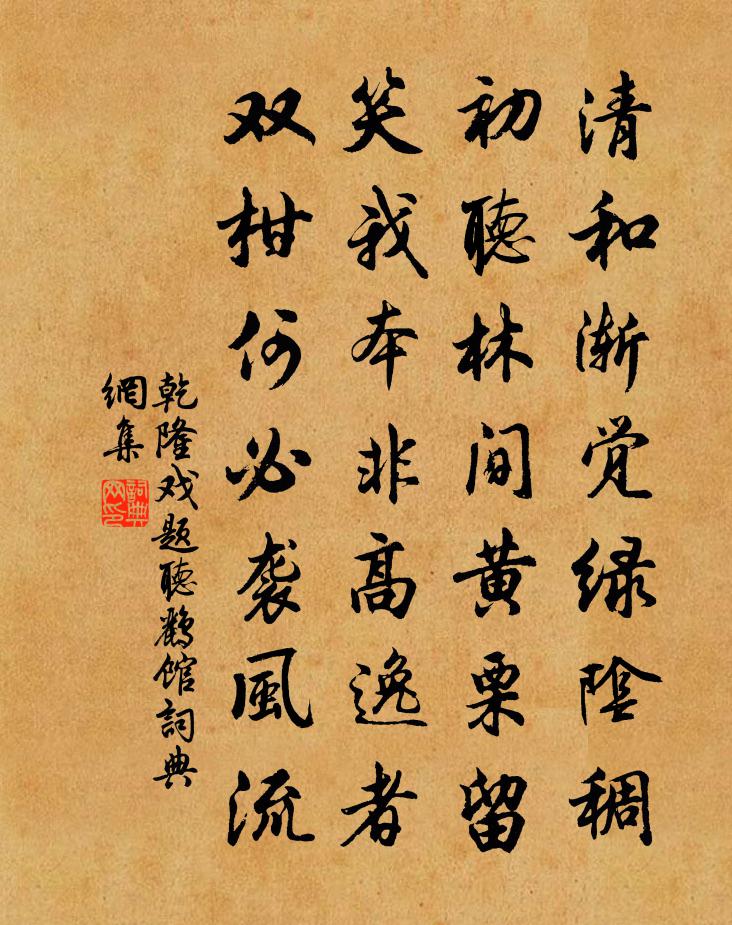 清和渐觉绿阴稠
初聽林间黄栗留
笑我本非高逸者
双柑何必袭風流
乾隆戏题聽鹂馆詞典
網集
詞典
网印